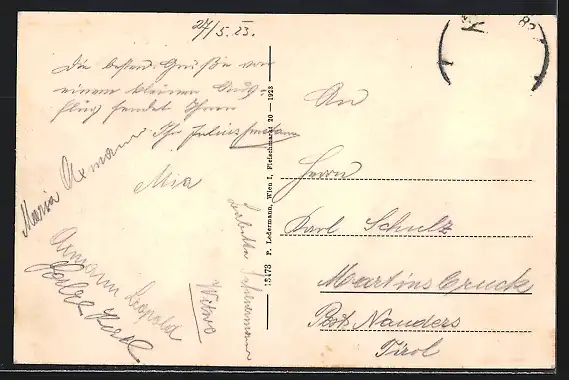 27/5.23.
Die besten Grüße von
einem kleinen Ausflug
sendet Ihnen
Ihr Julius
Mia
Maria Axmann
Axmann Leopold
Witwe
13473 P. Ledermann, Wien I, Fleischmarkt 20 — 1923
An
Herrn
Karl Schulz
Martinsbruck
Post Nauders
Tirol